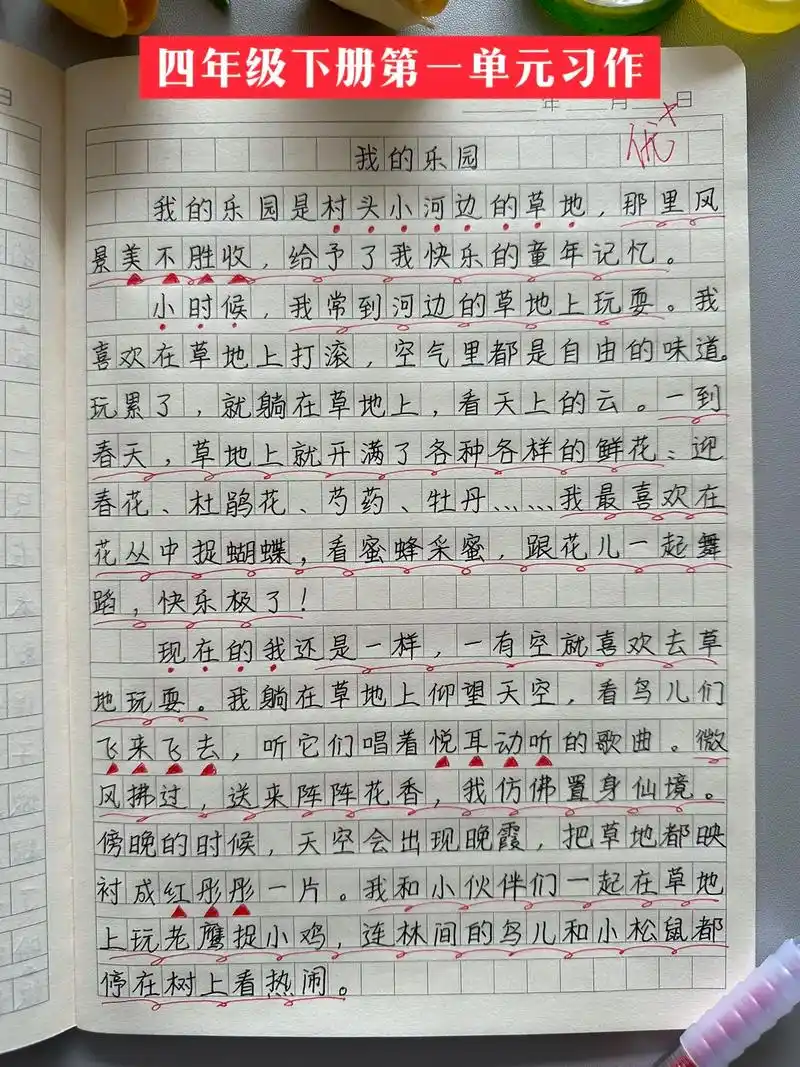 四年级下册第一单元习作
年 月 日
优+
我的乐园
我的乐园是村头小河边的草地，那里风
景美不胜收，给予了我快乐的童年记忆。
小时候，我常到河边的草地上玩耍。我
喜欢在草地上打滚，空气里都是自由的味道。
玩累了，就躺在草地上，看天上的云。一到
春天，草地上就开满了各种各样的鲜花：迎
春花、杜鹃花、芍药、牡丹……我最喜欢在
花丛中捉蝴蝶，看蜜蜂采蜜，跟花儿一起舞
蹈，快乐极了！
现在的我还是一样，一有空就喜欢去草
地玩耍。我躺在草地上仰望天空，看鸟儿们
飞来飞去，听它们唱着悦耳动听的歌曲。微
风拂过，送来阵阵花香，我仿佛置身仙境。
傍晚的时候，天空会出现晚霞，把草地都映
衬成红彤彤一片。我和小伙伴们一起在草地
上玩老鹰捉小鸡，连林间的鸟儿和小松鼠都
停在树上看热闹。
日